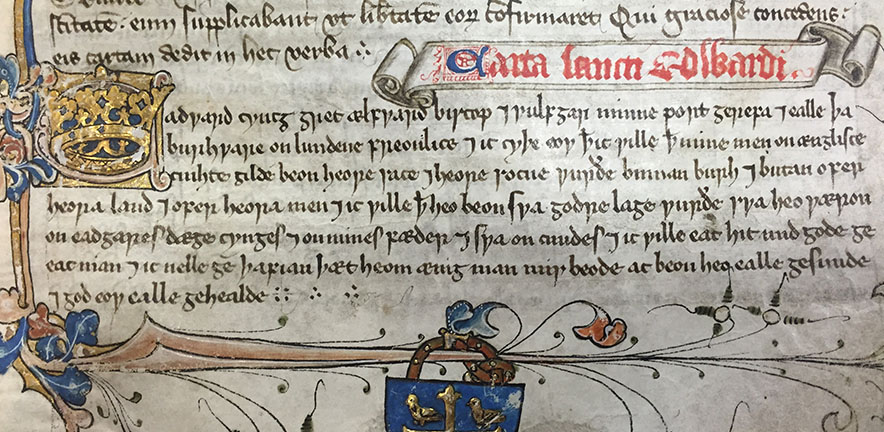 stitate · eum supplicabant vt lib̄tatē eoꝝ cōfirmaret Qui graciose concedens ·
eis cartam dedit in hec verba ∴
Carta sancti Edwardi.
Eadƿard cyncg gret ælfƿard biscop ⁊ ƿulfgar minne port gerefa ⁊ ealle þa
burhƿare on lundene freonlice ⁊ ic cyþe eoƿ ꝥ ic ƿille ꝥ mine men on ænglisce
cnihte gilde beon heore sace ⁊ heore socne ƿurðe binnan burh ⁊ butan ofer
heora land ⁊ ofer heora men ⁊ ic ƿille ꝥ heo beon sƿa godre lage ƿurðe sƿa heo ƿæron
on eadgares dæge cynges ⁊ on mines fæder ⁊ sƿa on cnudes ⁊ ic ƿille eac hit mid gode ge
eacnian ⁊ ic nelle ge þafian þæt heom ænig man mis beode ac beon heo ealle gesunde
⁊ god eoƿ ealle gehealde